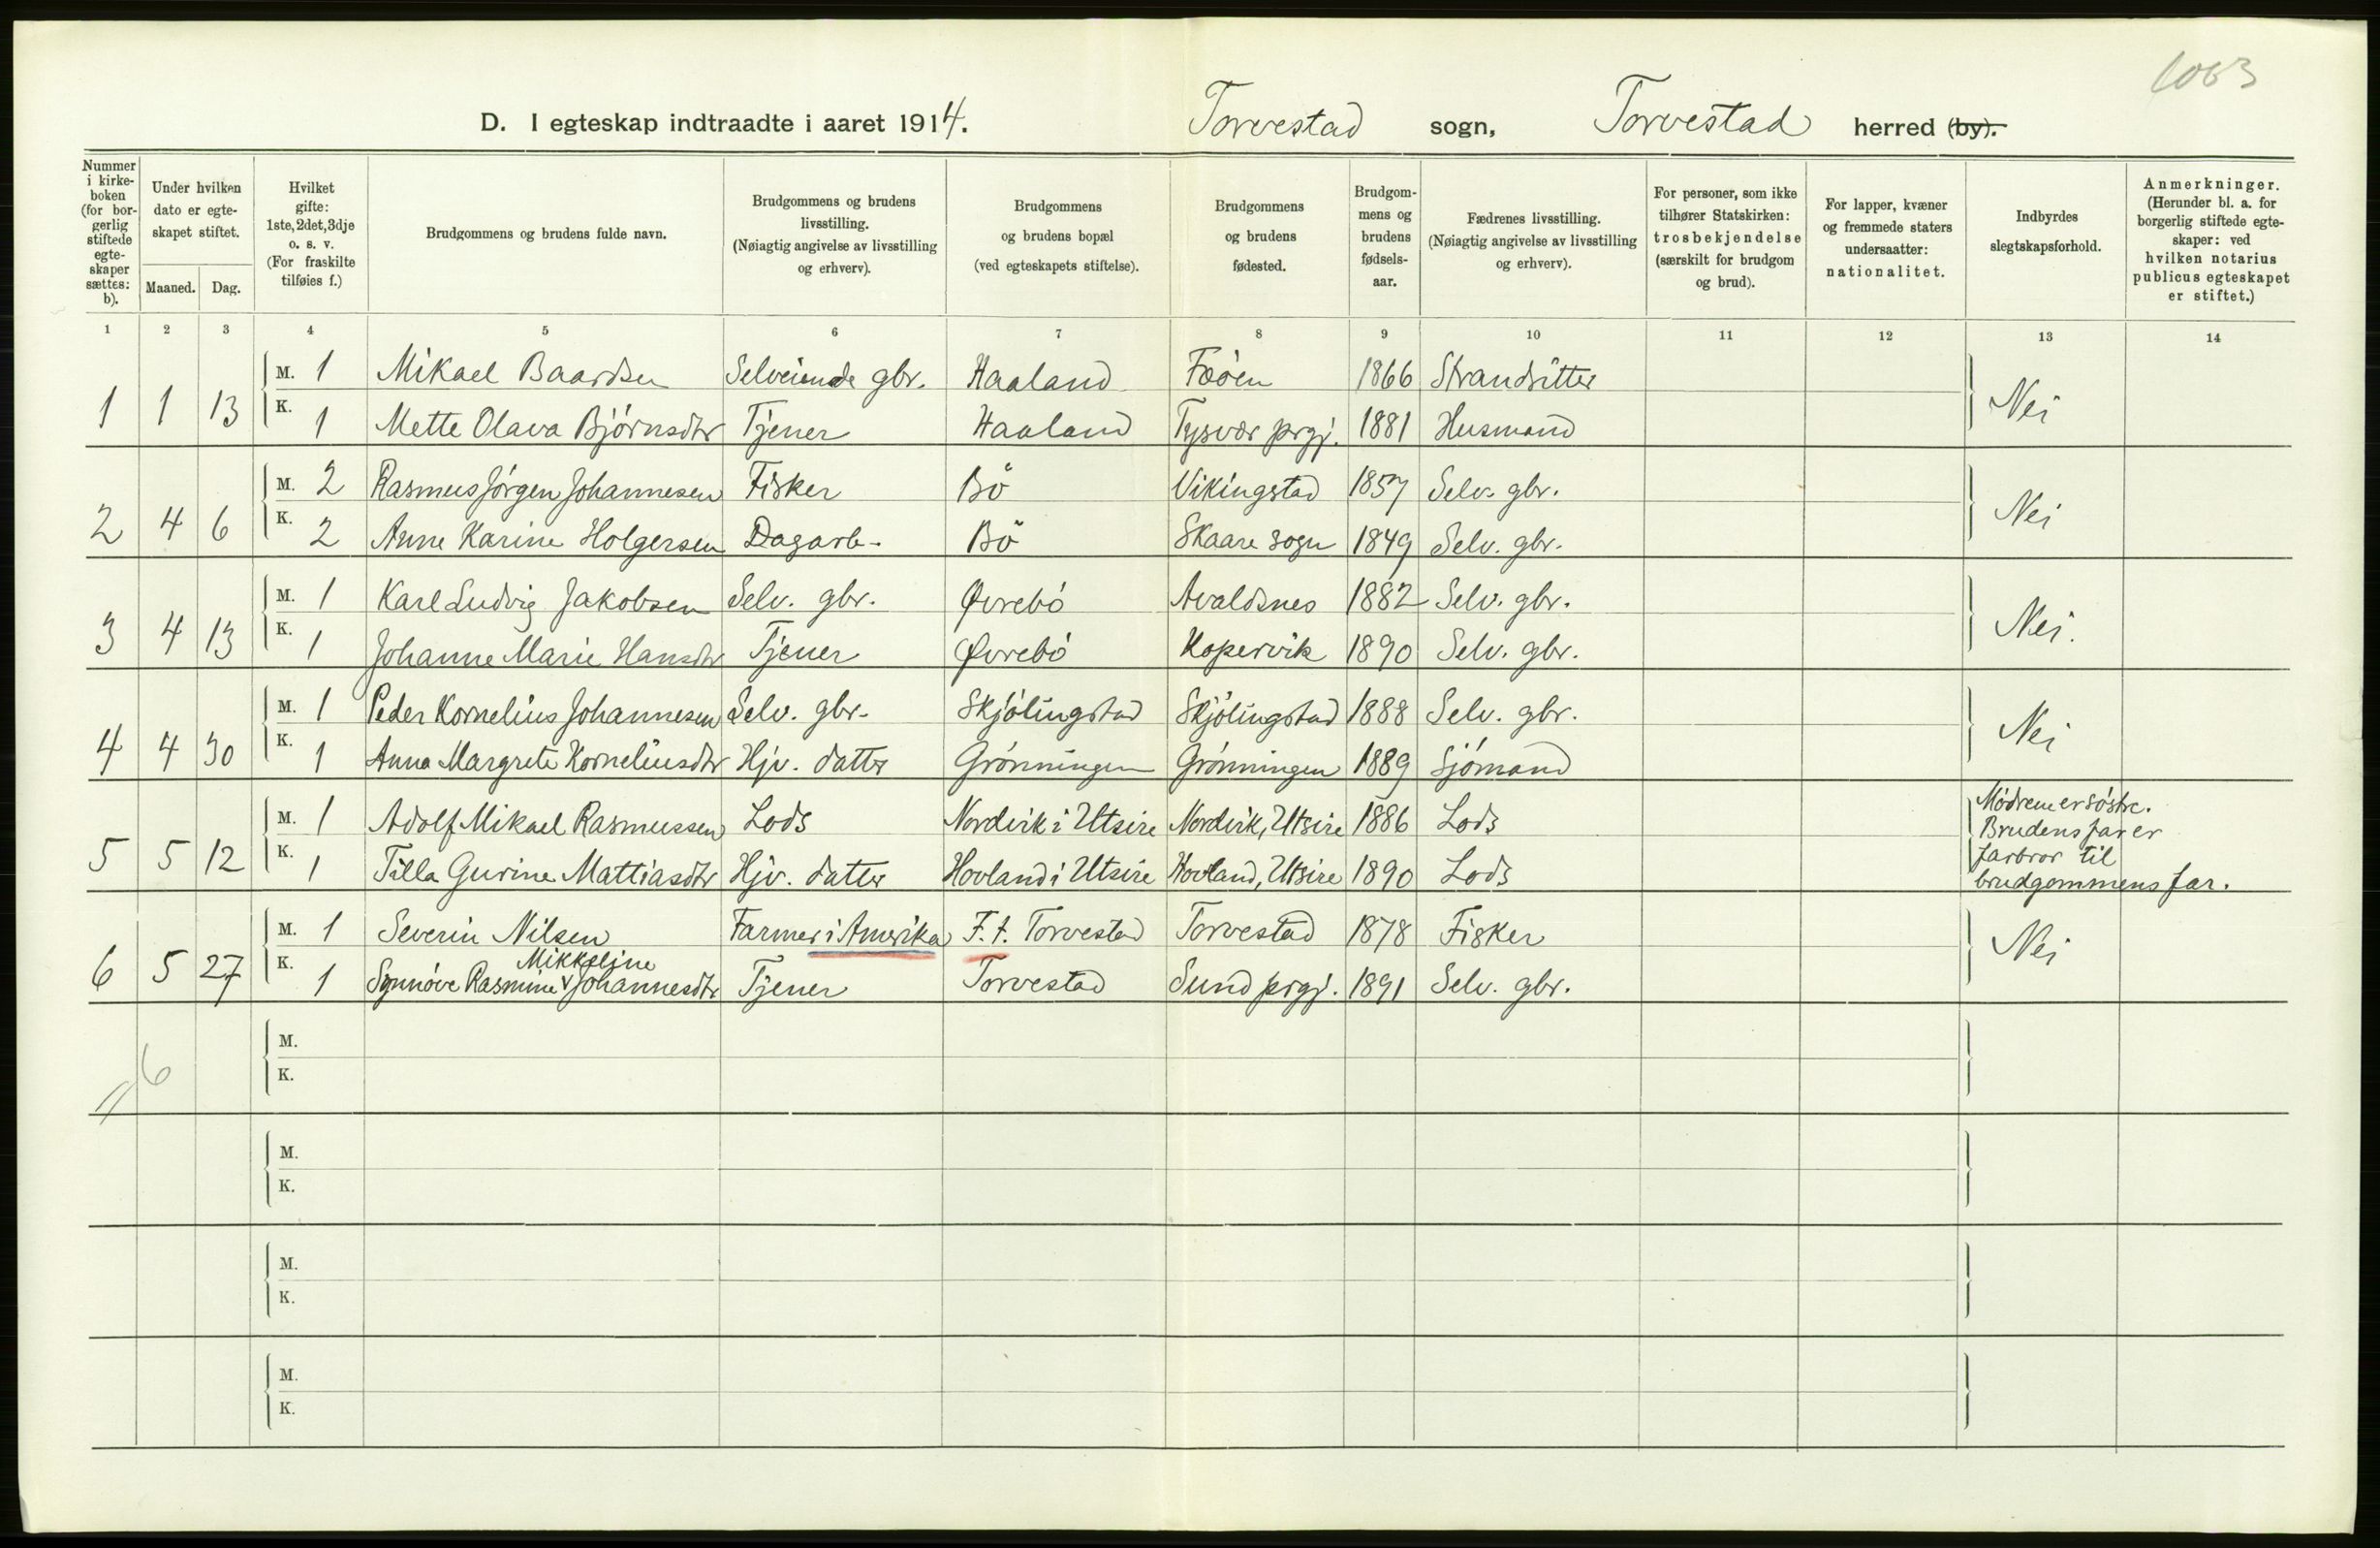 1063
D. I egteskap indtraadte i aaret 1914. Torvestad sogn, Torvestad herred (by).
Nummer i kirke- boken (for bor- gerlig stiftede egte- skaper sættes: b).
Under hvilken dato er egte- skapet stiftet.
Maaned. Dag.
Hvilket gifte: 1ste, 2det, 3dje o. s. v. (For fraskilte tilføies f.)
Brudgommens og brudens fulde navn.
Brudgommens og brudens livsstilling. (Nøiagtig angivelse av livsstilling og erhverv).
Brudgommens og brudens bopæl (ved egteskapets stiftelse).
Brudgommens og brudens fødested.
Brudgom- mens og brudens fødsels- aar.
Fædrenes livsstilling. (Nøiagtig angivelse av livsstilling og erhverv).
For personer, som ikke tilhører Statskirken: trosbekjendelse (særskilt for brudgom og brud).
For lapper, kvæner og fremmede staters undersaatter: nationalitet.
Indbyrdes slegtskapsforhold.
Anmerkninger. (Herunder bl. a. for borgerlig stiftede egte- skaper: ved hvilken notarius publicus egteskapet er stiftet.)
1 2 3 4 5 6 7 8 9 10 11 12 13 14
M. 1 Mikael Baardsen Selveiende gbr. Haaland Føøen 1866 Strandsitter
1 1 13 K. 1 Mette Olava Bjørnsdtr Tjener Haaland Tysvær prgj. 1881 Husmand Nei
M. 2 Rasmus Jørgen Johannesen Fisker Bö Vikingstad 1857 Selv. gbr.
2 4 6 K. 2 Anne Karine Holgersen Dagarb. Bö Skaare sogn 1849 Selv. gbr. Nei
M. 1 Karl Ludvig Jakobsen Selv. gbr. Øvrebó Avaldsnes 1882 Selv. gbr.
3 4 13 K. 1 Johanne Marie Hansdtr Tjener Øvrebó Kopervik 1890 Selv. gbr. Nei.
M. 1 Peder Kornelius Johannesen Selv. gbr. Skjólingstad Skjólingstad 1888 Selv. gbr.
4 4 30 K. 1 Anna Margrete Korneliusdtr Hjv. datter Grónningen Grónningen 1889 Sjómand Nei
M. 1 Adolf Mikael Rasmussen Lods Nordvik i Utsire Nordvik, Utsire 1886 Lods
5 5 12 K. 1 Tilla Gurine Mattiasdtr Hjv. datter Hovland i Utsire Hovland, Utsire 1890 Lods
Módrene er sóstre.
Brudens far er
farbror til
brudgommens far.
M. 1 Severin Nilsen Farmer i Amerika F. t. Torvestad Torvestad 1878 Fisker
Mikkeline
6 5 27 K. 1 Synnóve Rasmine v Johannesdtr Tjener Torvestad Sund prgj. 1891 Selv. gbr. Nei
M.
6
K.
M.
K.
M.
K.
M.
K.